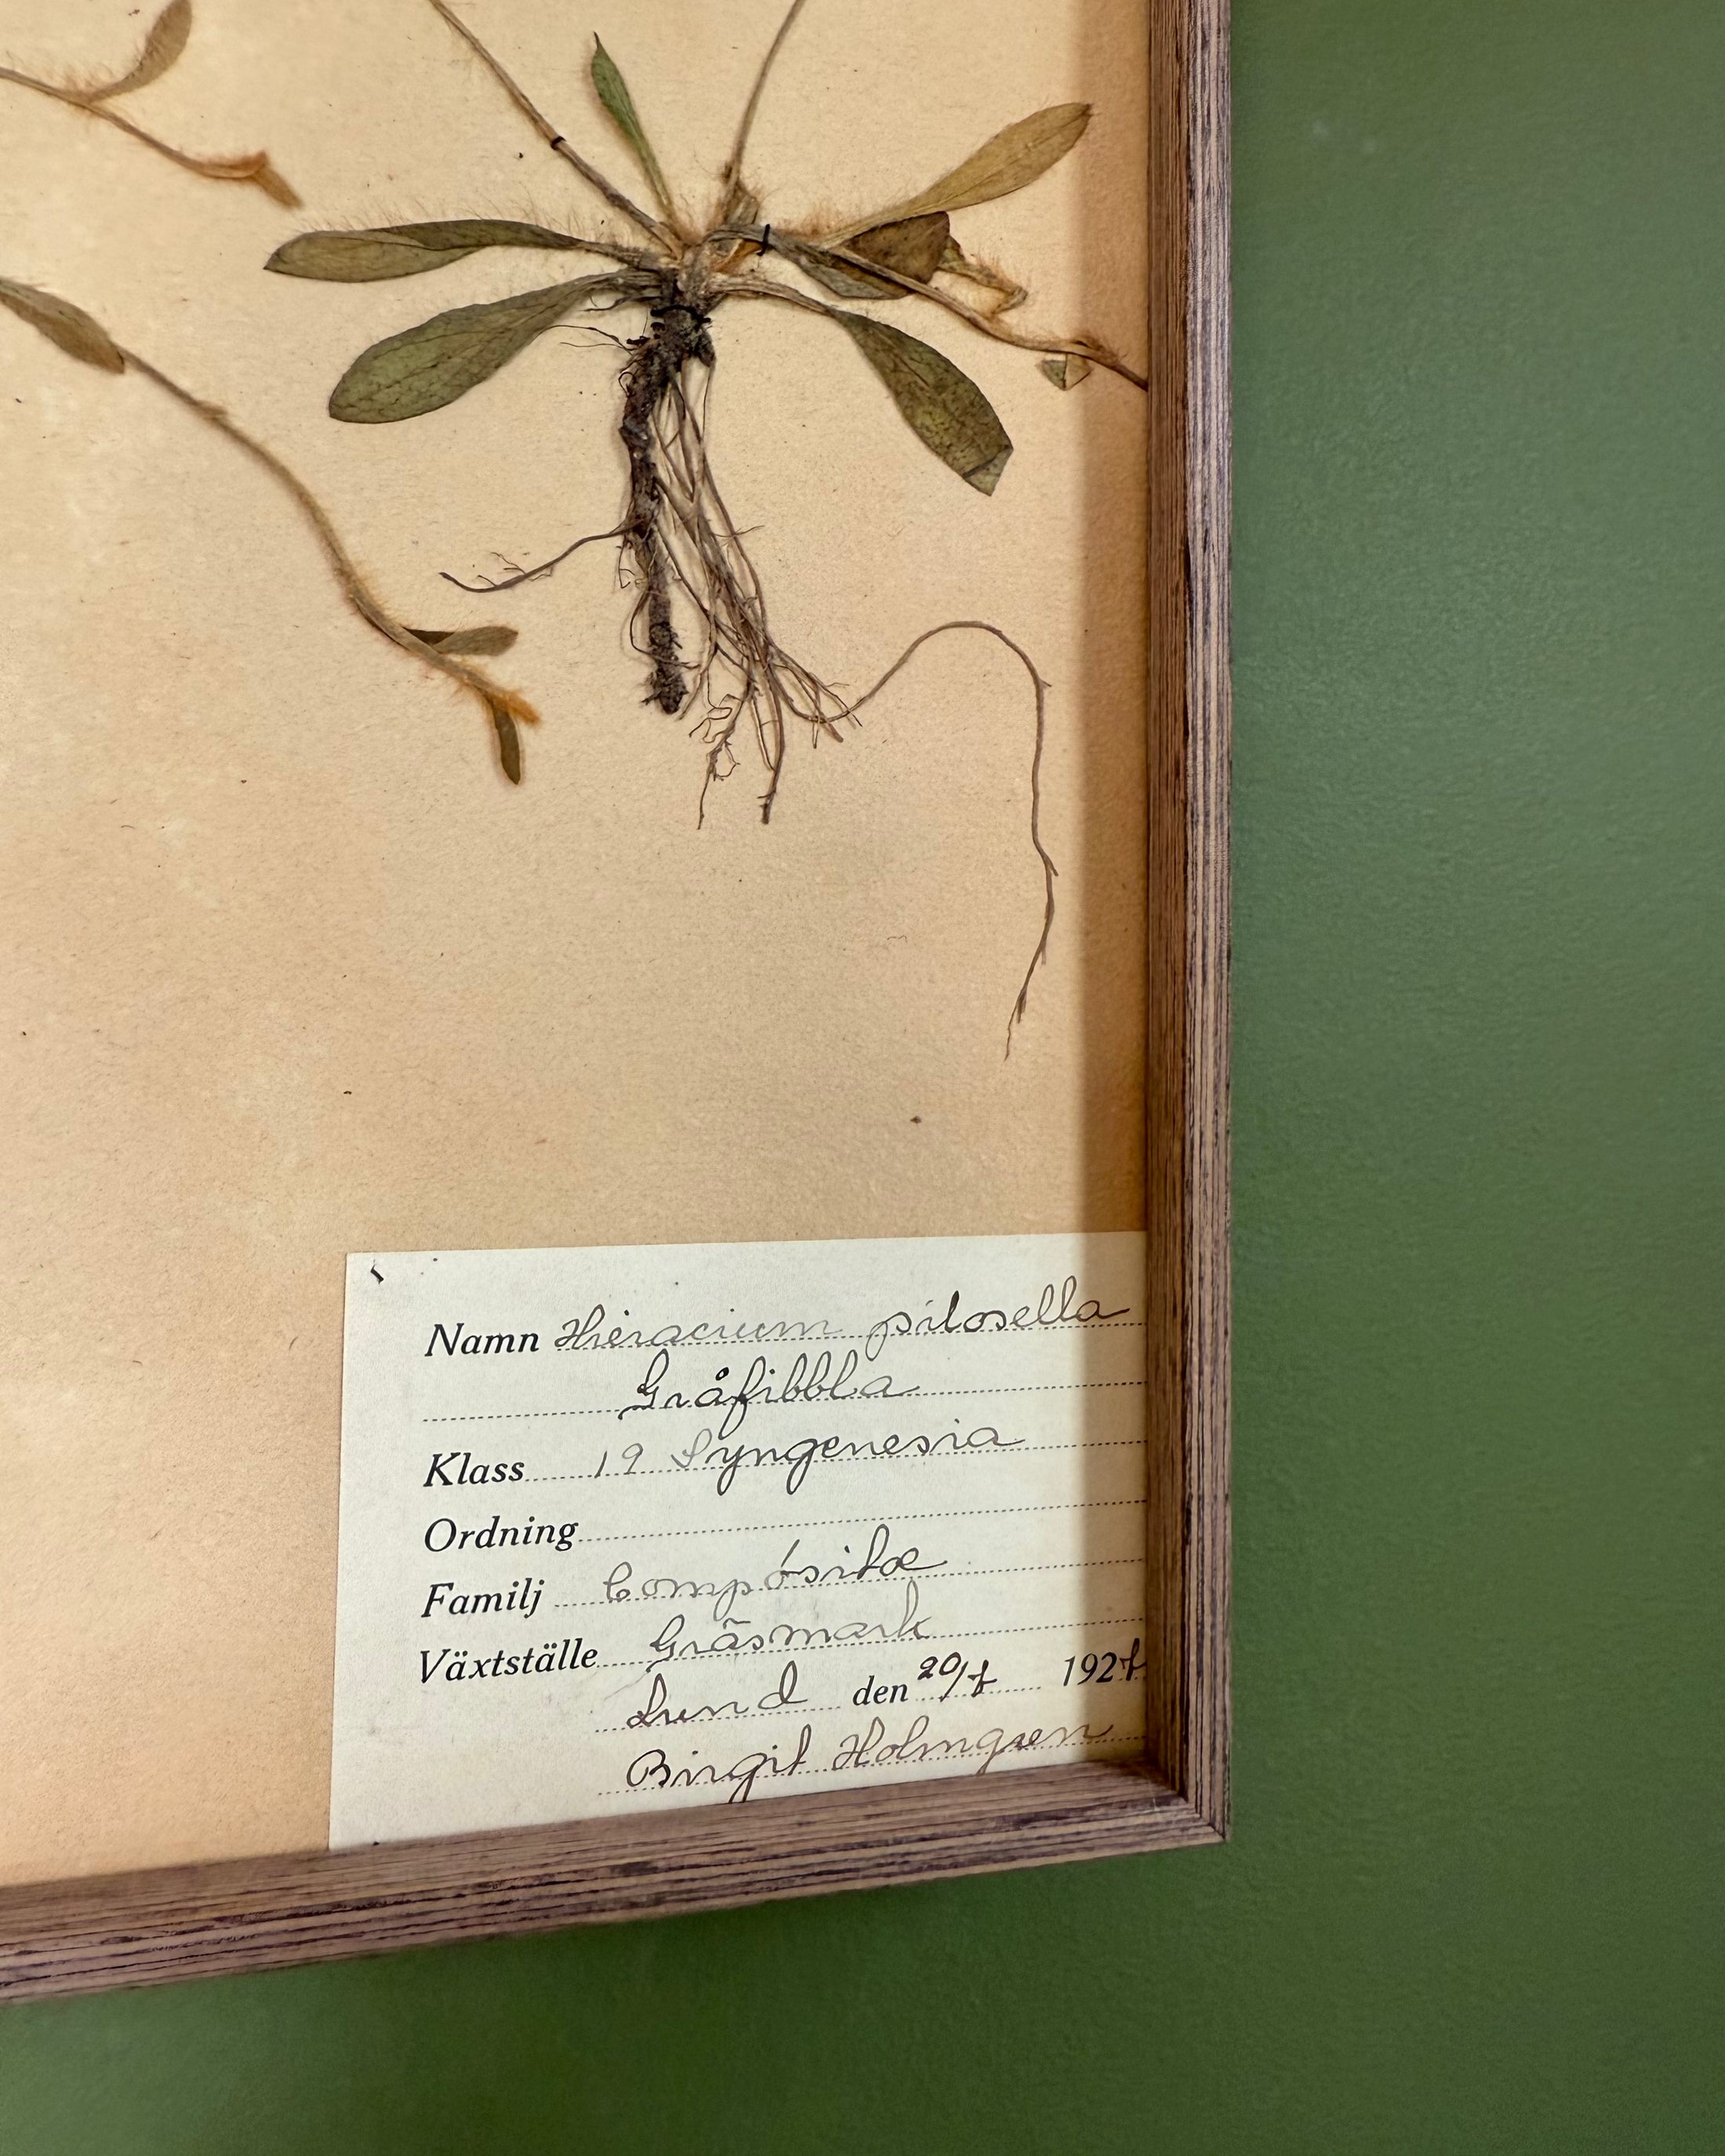 Namn Hieracium pilosella
Gråfibbla
Klass 19 Syngenesia
Ordning
Familj Compósitæ
Växtställe Gräsmark
Lund den 20/7 1927
Birgit Holmgren